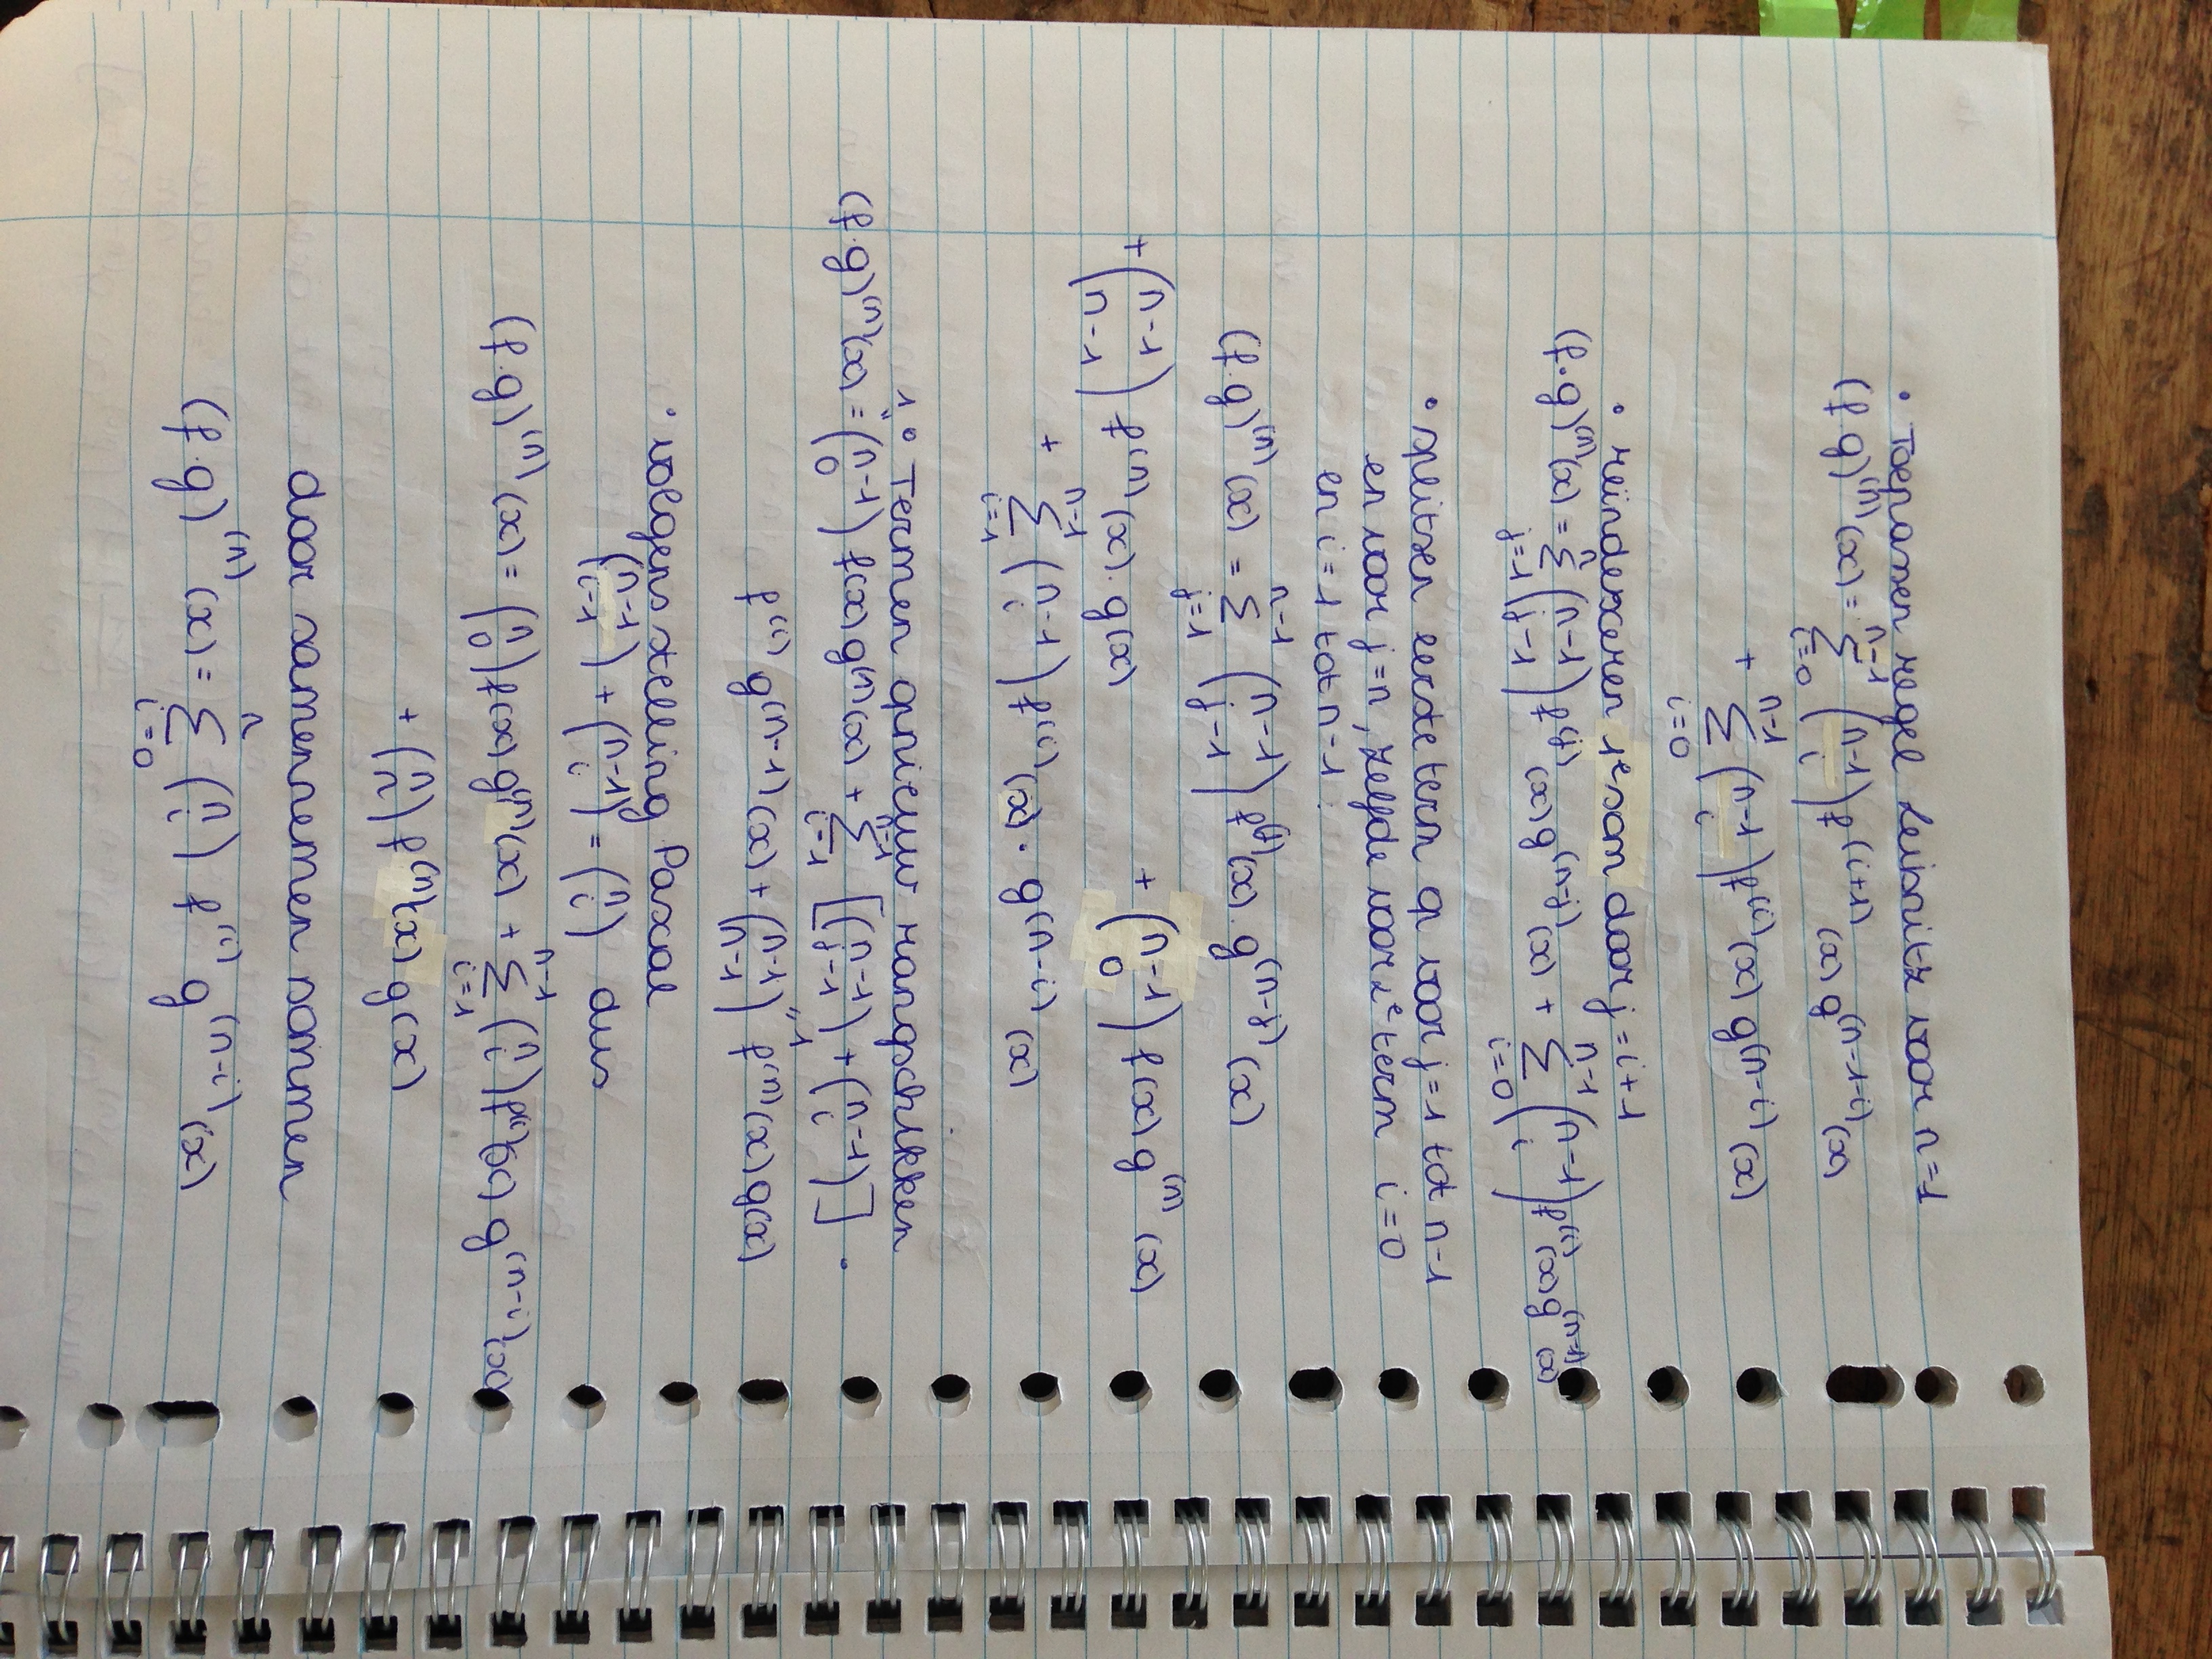 • Toepassen regel Leibnitz voor n=1
(f.g)^(n)(x) = Σ_{i=0}^{n-1} (n-1 \atop i) f^(i+1)(x) g^(n-1-i)(x)
+ Σ_{i=0}^{n-1} (n-1 \atop i) f^(i)(x) g^(n-i)(x)
• reïndexeren 1e som door j=i+1
(f•g)^(n)(x) = Σ_{j=1}^{n} (n-1 \atop j-1) f^(j)(x) g^(n-j)(x) + Σ_{i=0}^{n-1} (n-1 \atop i) f^(i)(x) g^(n-1)(x)
• splitsen eerste term op voor j=1 tot n-1
en voor j=n, zelfde voor 2e term i=0
en i=1 tot n-1:
(f.g)^(n)(x) = Σ_{j=1}^{n-1} (n-1 \atop j-1) f^(j)(x). g^(n-j)(x)
+ (n-1 \atop n-1) f^(n)(x). g(x) + (n-1 \atop 0) f(x) g^(n)(x)
+ Σ_{i=1}^{n-1} (n-1 \atop i) f^(i)(x) • g^(n-i)(x)
1 • Termen opnieuw rangschikken
(f.g)^(n)(x) = (n-1 \atop 0) f(x) g^(n)(x) + Σ_{i=1}^{n-1} [(n-1 \atop j-1) + (n-1 \atop i)] •
f^(i) g^(n-1)(x) + (n-1 \atop n-1) "1 f^(n)(x) g(x)
• volgens stelling Pascal
(n-1 \atop i-1) + (n-1 \atop i) = (n \atop i) dus
(f.g)^(n)(x) = (n \atop 0) f(x) g^(n)(x) + Σ_{i=1}^{n-1} (n \atop i) f^(i)(x) g^(n-i)(x)
+ (n \atop n) f^(n)(x) g(x)
door samennemen sommen
(f.g)^(n)(x) = Σ_{i=0}^{n} (n \atop i) f^(i) g^(n-i)(x)